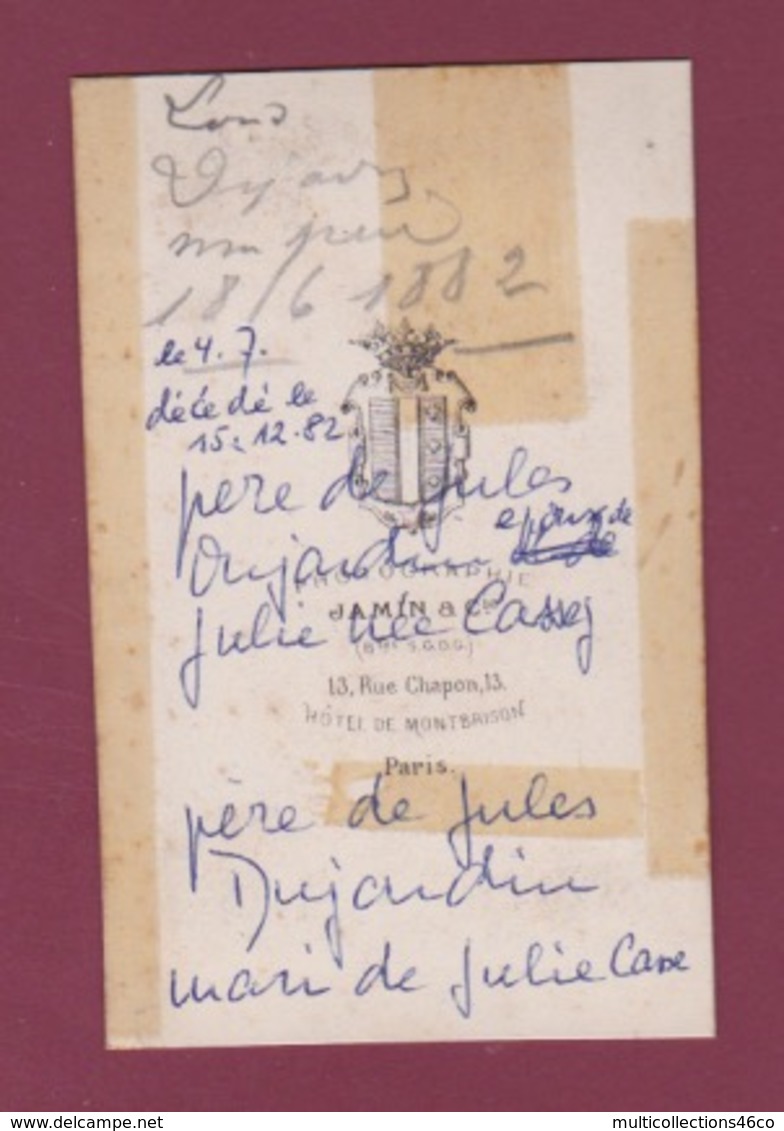 Louis
Dujardin
mon père
18/6 1882
le 4.7.
décédé le
15.12.82
père de Jules
Dujardin epoux de
PHOTOGRAPHIE
JAMIN & Cie
Julie née Casse
(Btés S.G.D.G.)
13, Rue Chapon, 13.
HÔTEL DE MONTBRISON
Paris.
père de Jules
Dujardin
mari de Julie Casse
delcampe.net
multicollections46co